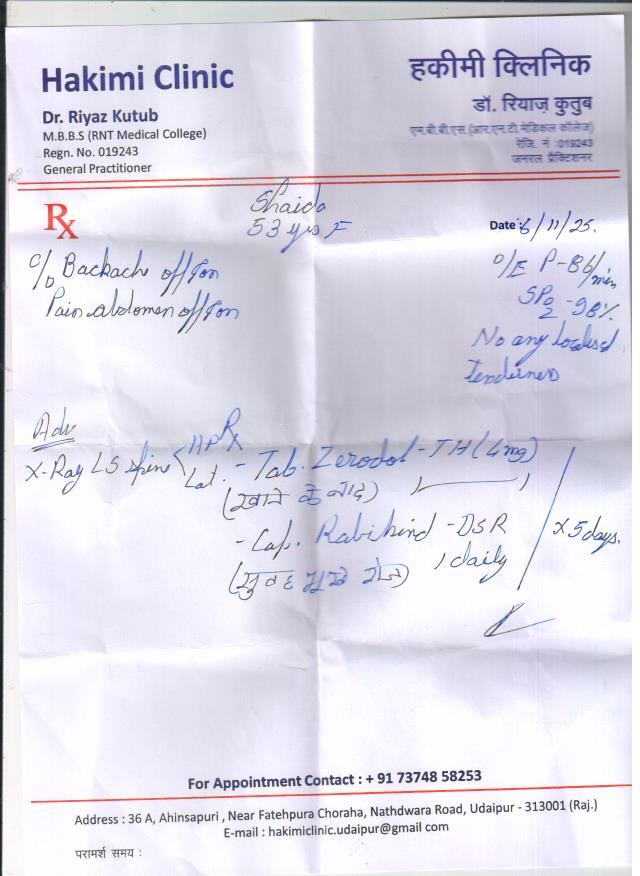 Hakimi Clinic
Dr. Riyaz Kutub
M.B.B.S (RNT Medical College)
Regn. No. 019243
General Practitioner
हकीमी क्लिनिक
डॉ. रियाज़ क़ुतुब
एम.बी.बी.एस.(आर.एन.टी.मेडिकल कॉलेज)
रेजि. नं :019243
जनरल प्रैक्टिशनर
Rx
Shaida
53 yrs F
Date : 6/11/25.
c/o Backache off/on
Pain abdomen off/on
O/E P-86/min
SPO2 -98%
No any localised
tenderness
Adv
X-Ray LS spine < AP
Lat.
Rx
- Tab. Zerodol-TH (4mg)
(खाने के बाद) 1 — 1
- Cap. Rabikind -DSR
1 daily
(सुबह भूखे पेट)
x 5 days.
For Appointment Contact : + 91 73748 58253
Address : 36 A, Ahinsapuri , Near Fatehpura Choraha, Nathdwara Road, Udaipur - 313001 (Raj.)
E-mail : hakimiclinic.udaipur@gmail com
परामर्श समय :